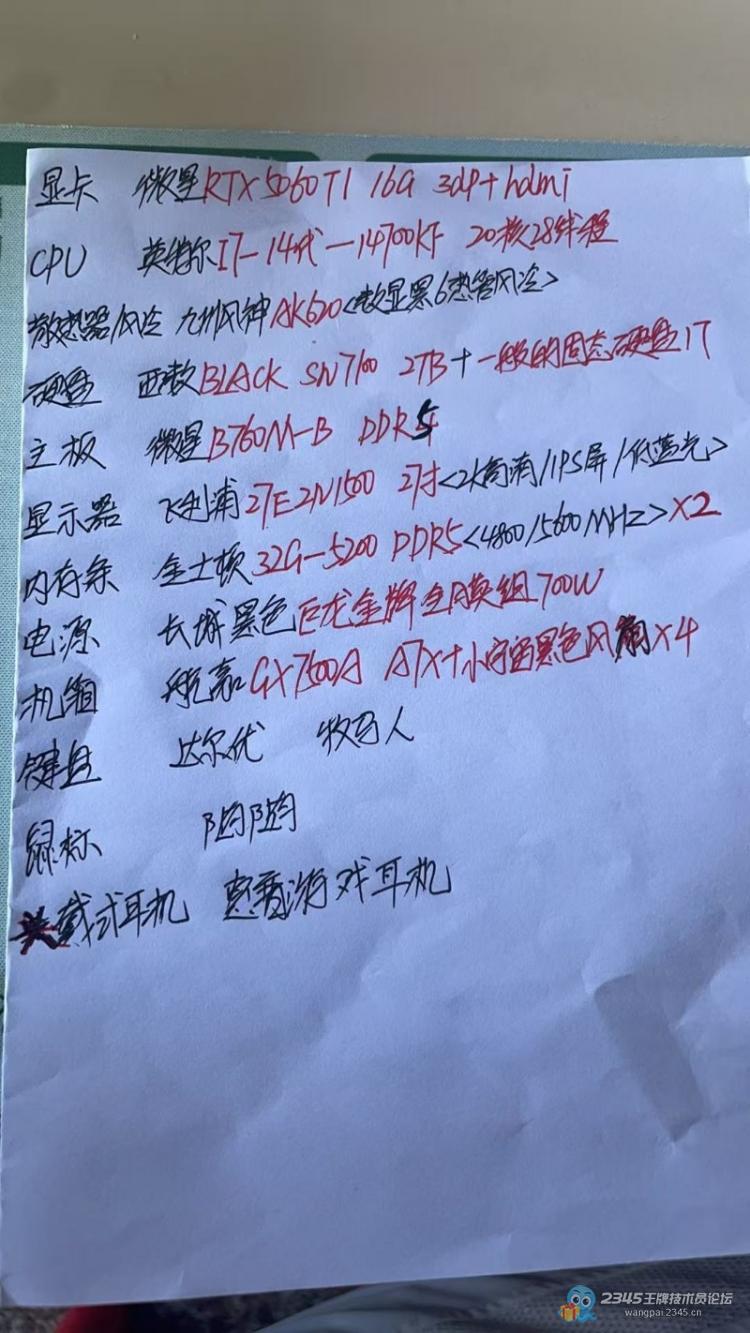 显卡 微星RTX5060TI 16G 3dp+hdmi
CPU 英特尔I7-14代-14700KF 20核28线程
散热器/风冷 九州风神AK620<数显黑6热管风冷>
硬盘 西数BLACK SN7100 2TB+一般的固态硬盘1T
主板 微星B760M-B DDR5
显示器 飞利浦27E2N1500 27寸<2K高清/IPS屏/低蓝光>
内存条 金士顿32G-5200 DDR5<4800/5600MHZ>X2
电源 长城黑色巨龙金牌全模组700W
机箱 航嘉GX7500A A7X+小宇宙黑色风扇X4
键盘 达尔优 牧马人
鼠标
头戴式耳机 惠普游戏耳机
2345王牌技术员论坛
wangpai.2345.cn